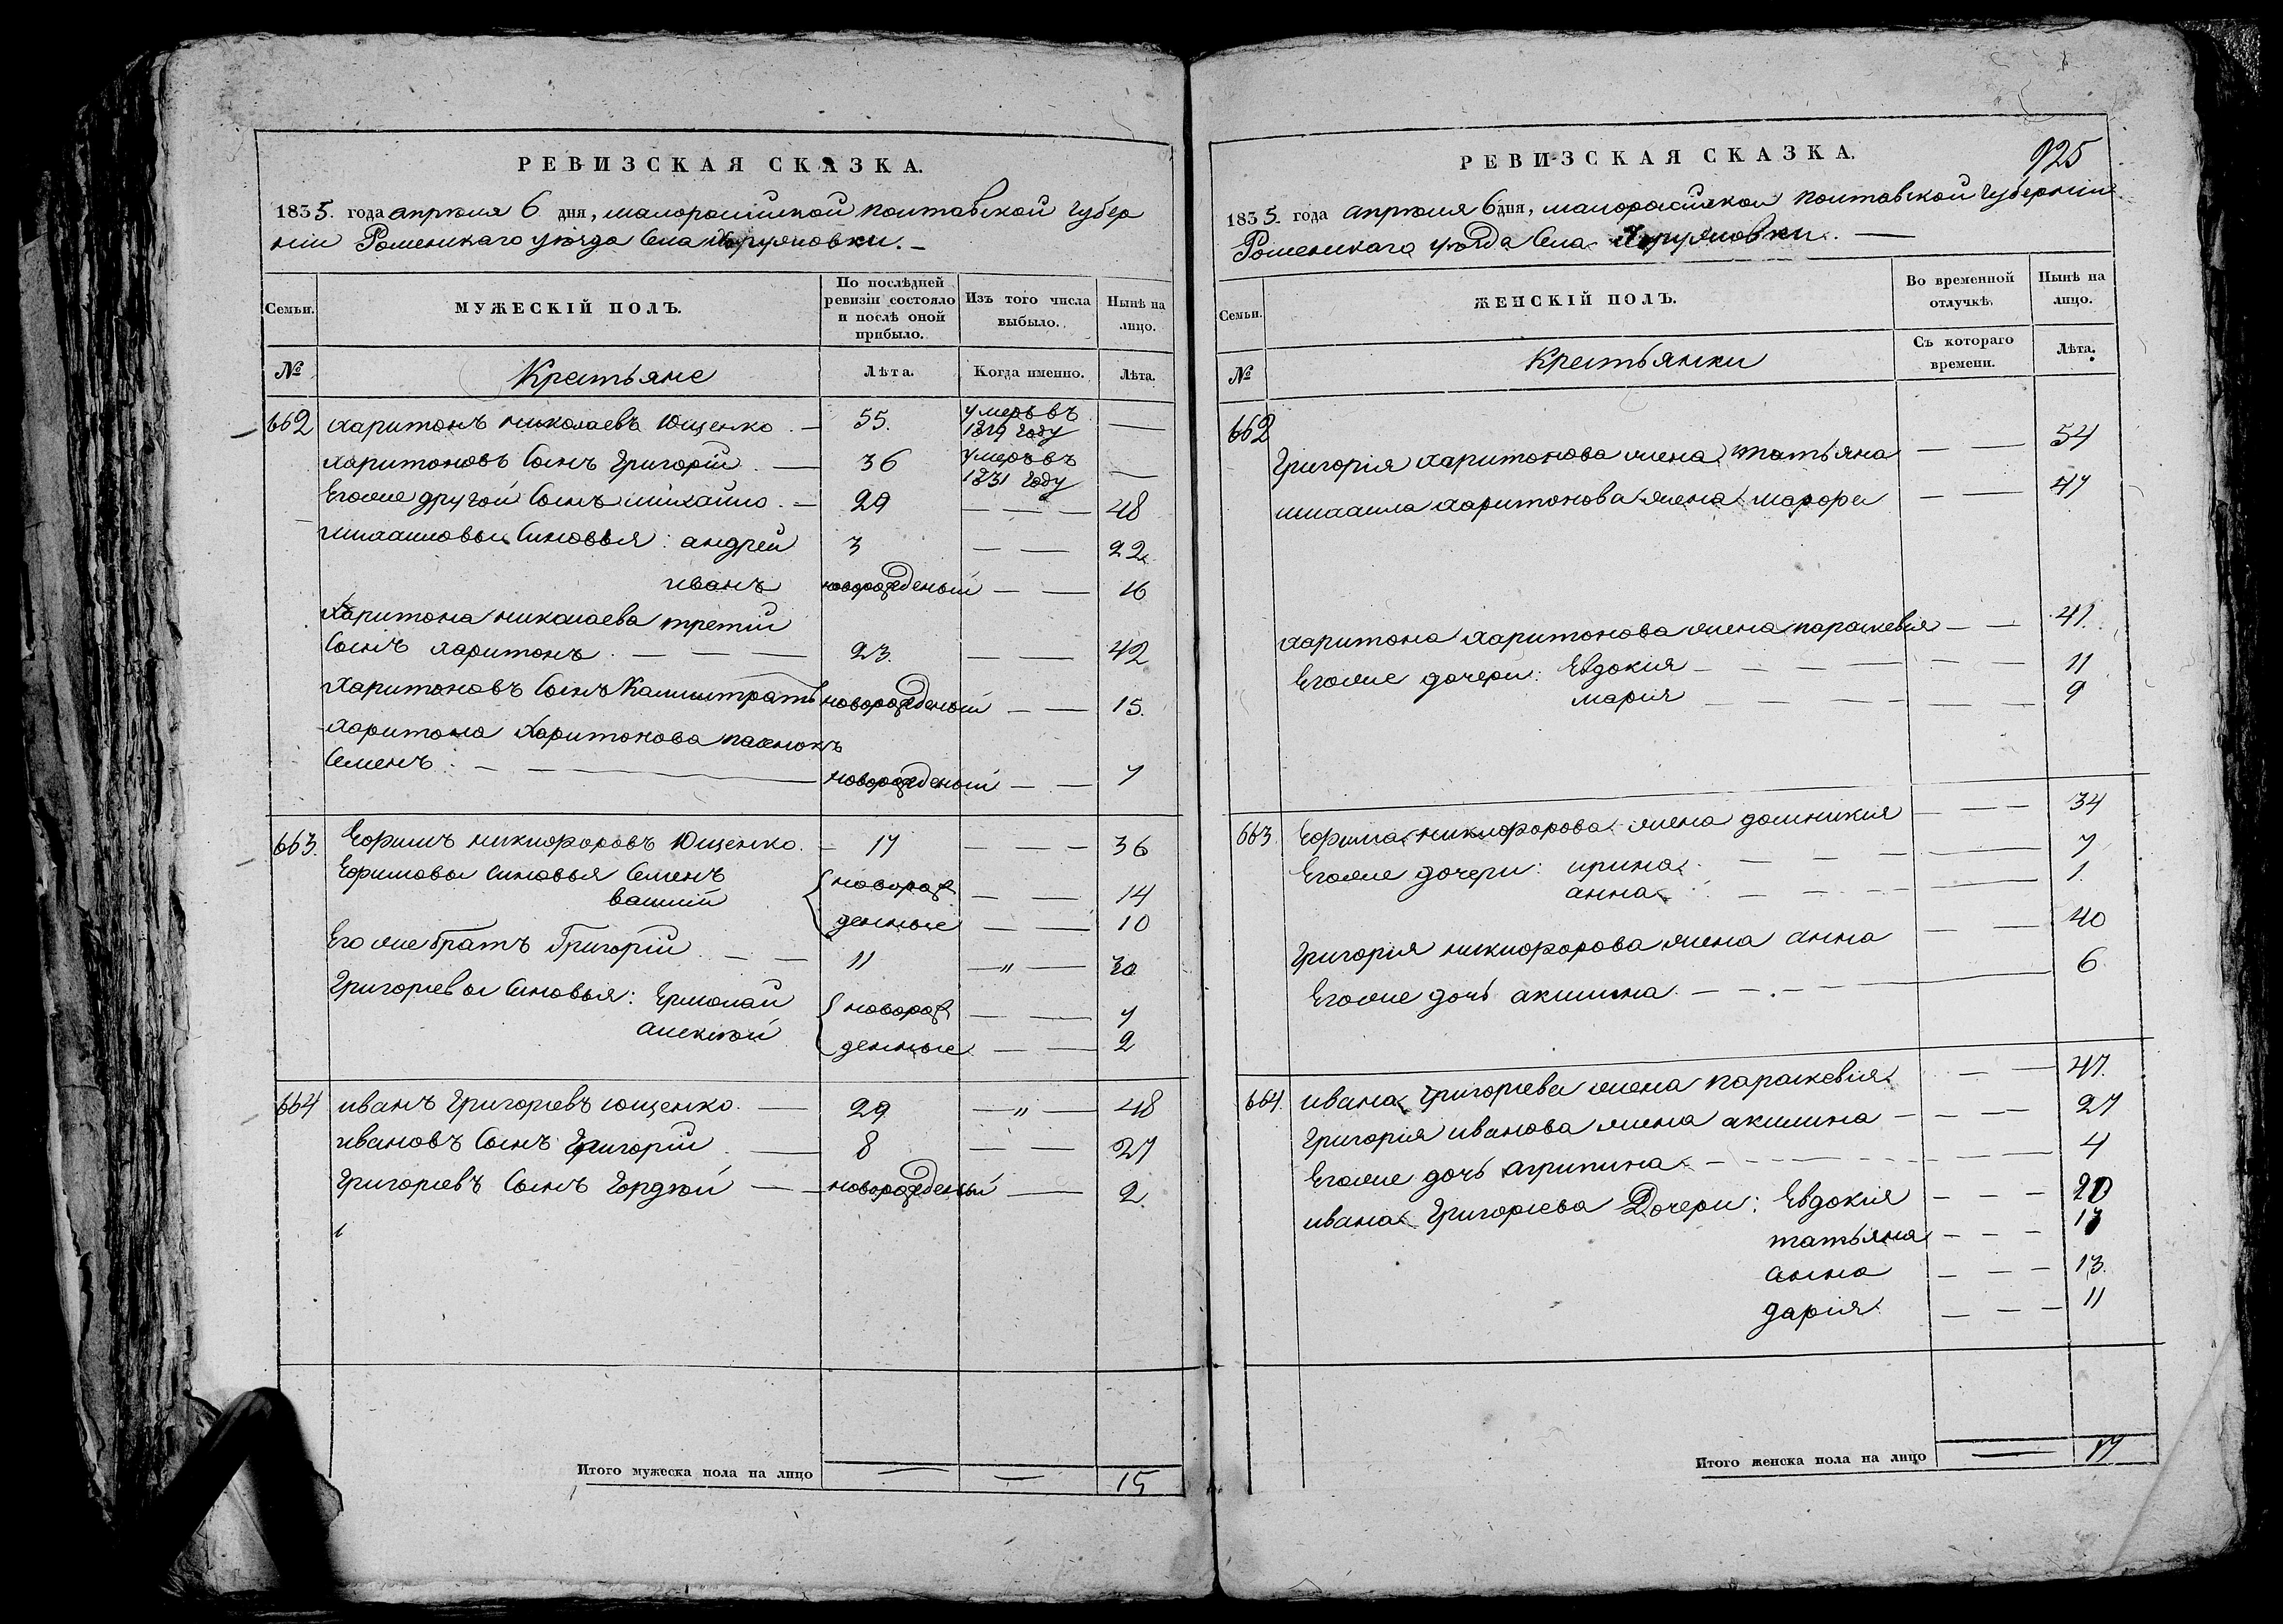 РЕВИЗСКАЯ СКАЗКА.
1835. года апреля 6 дня, малоросийской полтавской губер
нии Роменскаго уѣзда Села Хоружовки. —
Семьи.
МУЖЕСКІЙ ПОЛЪ.
По послѣдней ревизіи состояло и послѣ оной прибыло.
Изъ того числа выбыло.
Нынѣ на лицо.
№
Крестьяне
Лѣта.
Когда именно.
Лѣта.
662 харитонъ николаевъ Ющенко . — 55. умеръ въ 1819 году —
харитоновъ Сынъ Григорій . — 36 умеръ въ 1831 году —
Егоже другой Сынъ михайло . — 29 — — — 48
михаиловы Синовья : андрей 3 — — 22
иванъ новорожденый — — 16
Харитона николаева третій
Сынъ харитонъ . — — — 23. — — 42
Харитоновъ Сынъ Калистратъ новорожденый — — 15.
харитона Харитонова пасинокъ
Семенъ . — — новорожденый — — 7
663. Ефимъ никифоровъ Ющенко . — 17 — — — 36
Ефимовы синовья Семенъ { новорож — — 14
василий денные — — 10
Егоже братъ Григорій . — — 11 — " — 30
Григорьевы Синовья : Ермолай { новорож — — 7
алексѣй денные — — 2
664 иванъ Григорьевъ ющенко . — 29 — " — 48
ивановъ Сынъ Григорій . — 8 — — 27
Григорьевъ Сынъ Гордѣй — — новорожденый — 2
Итого мужеска пола на лицо 15
РЕВИЗСКАЯ СКАЗКА.
925
1835. года апреля 6 дня, малоросийской полтавской губернии
Роменскаго уѣзда Села Хоружовки. —
Семьи.
ЖЕНСКІЙ ПОЛЪ.
Во временной отлучкѣ.
Нынѣ на лицо.
№
Крестьянки
Съ котораго времени.
Лѣта.
662
Григорія харитонова жена татьяна — — 54
михаила харитонова жена марфа — — 47
харитона харитонова жена параскевія — — 41.
Егоже дочери : Евдокія — — — — — 11
мария — — — — — 9
663 Ефима никифорова жена домникия — — — 34
Егоже дочери : ирина . — — — 7
анна . — — — 1.
Григория никифорова жена анна — — 40
Егоже дочь акилина . — — . — — 6
664. ивана Григорьева жена параскевія — — 47.
Григория иванова жена акилина — — — — 27
Егоже дочь агрипина — — — 4
ивана Григорьева Дочери : Евдокия — — — 20
татьяна — — — 17
анна — — — 13.
дария — — — 11
Итого женска пола на лицо 17